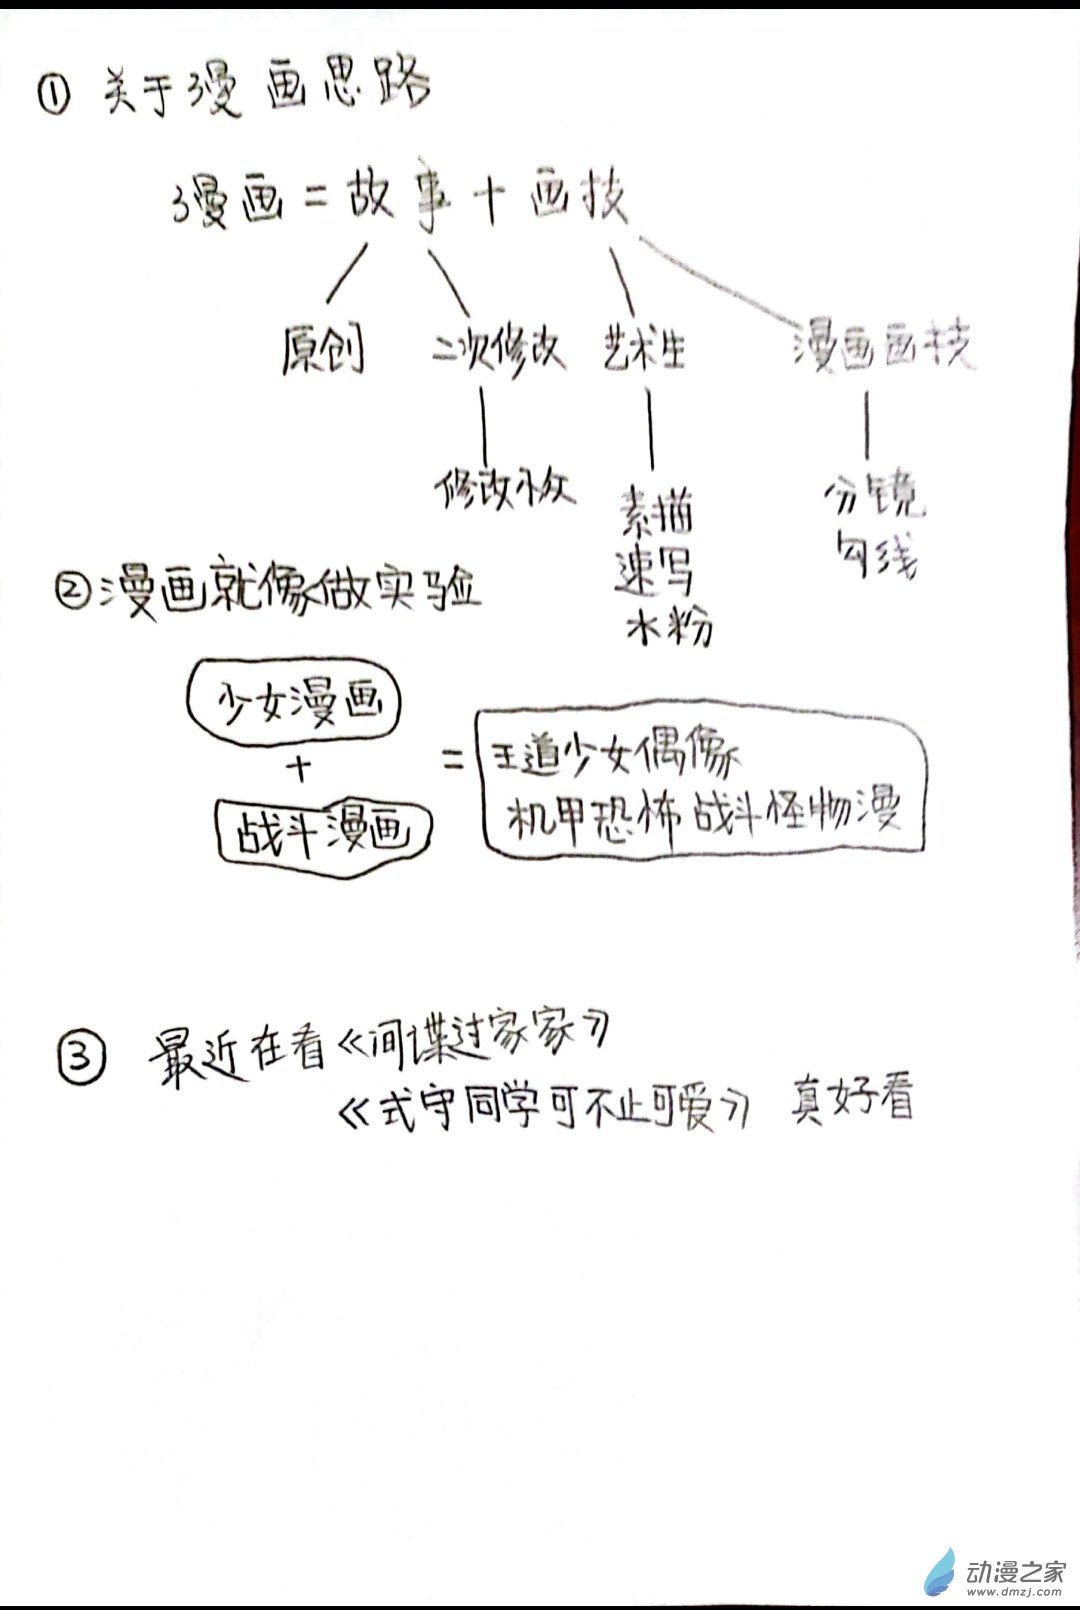 ① 关于漫画思路
漫画=故事+画技
原创 二次修改 艺术生 漫画画技
修改小众 素描 分镜
速写 勾线
水粉
②漫画就像做实验
少女漫画
+
战斗漫画
=
王道少女偶像
机甲恐怖战斗怪物漫
③ 最近在看《间谍过家家》
《式守同学可不止可爱》 真好看
动漫之家
www.dmzj.com